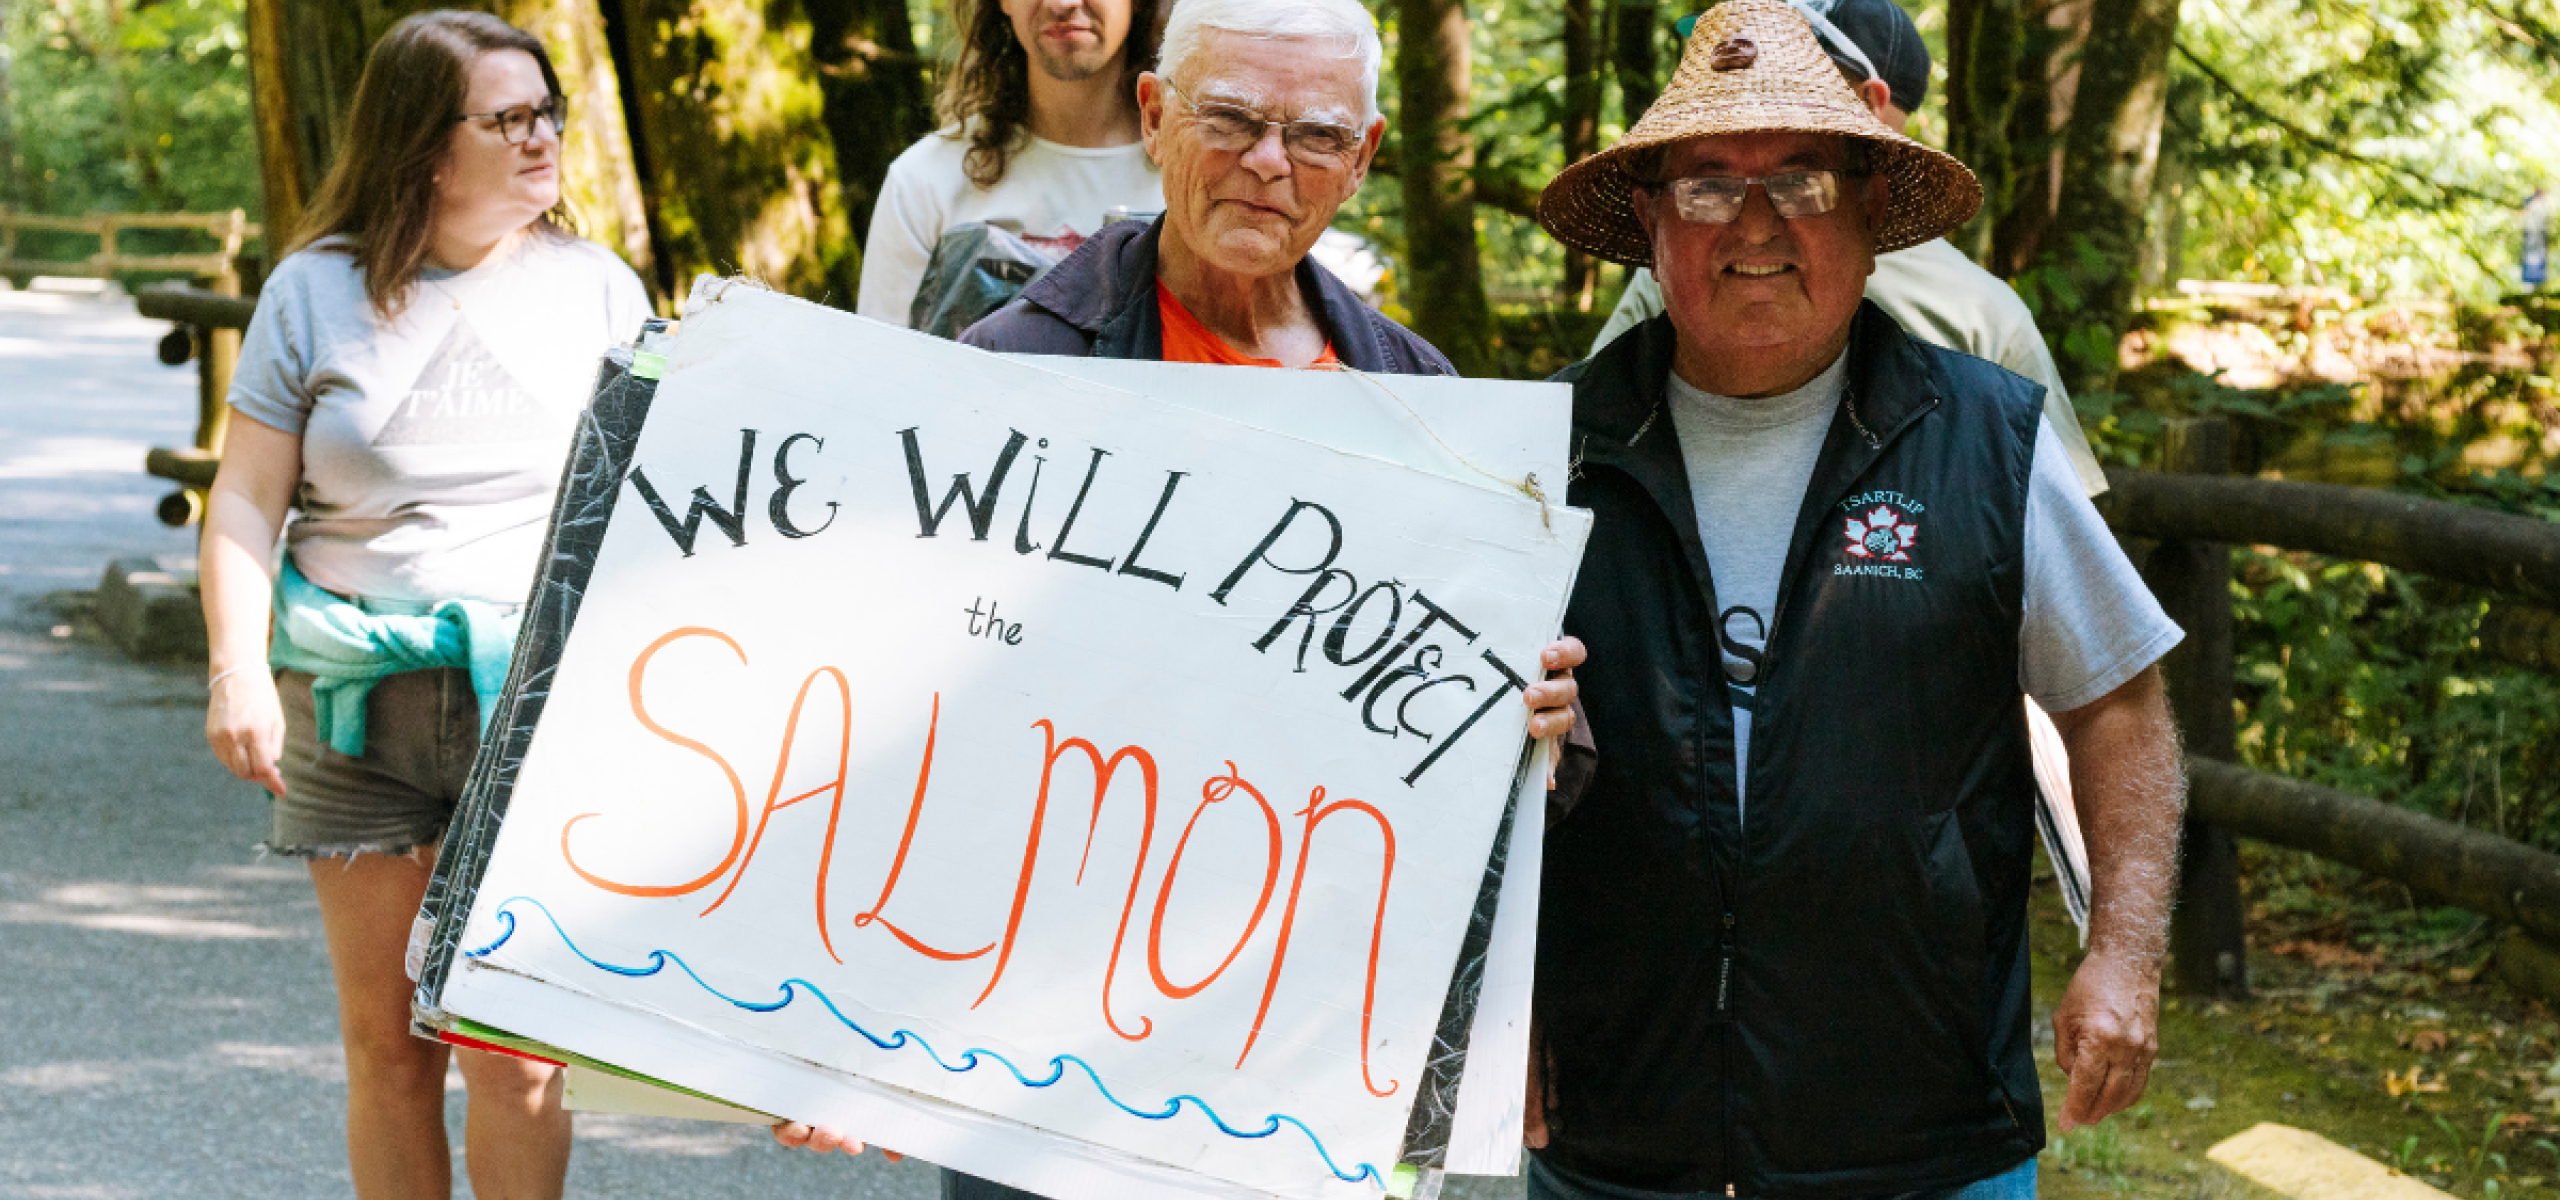 JE
T'AIME
WE WiLL PROTECT
the
SALMON
S
TSARTLIP
SAANICH, BC